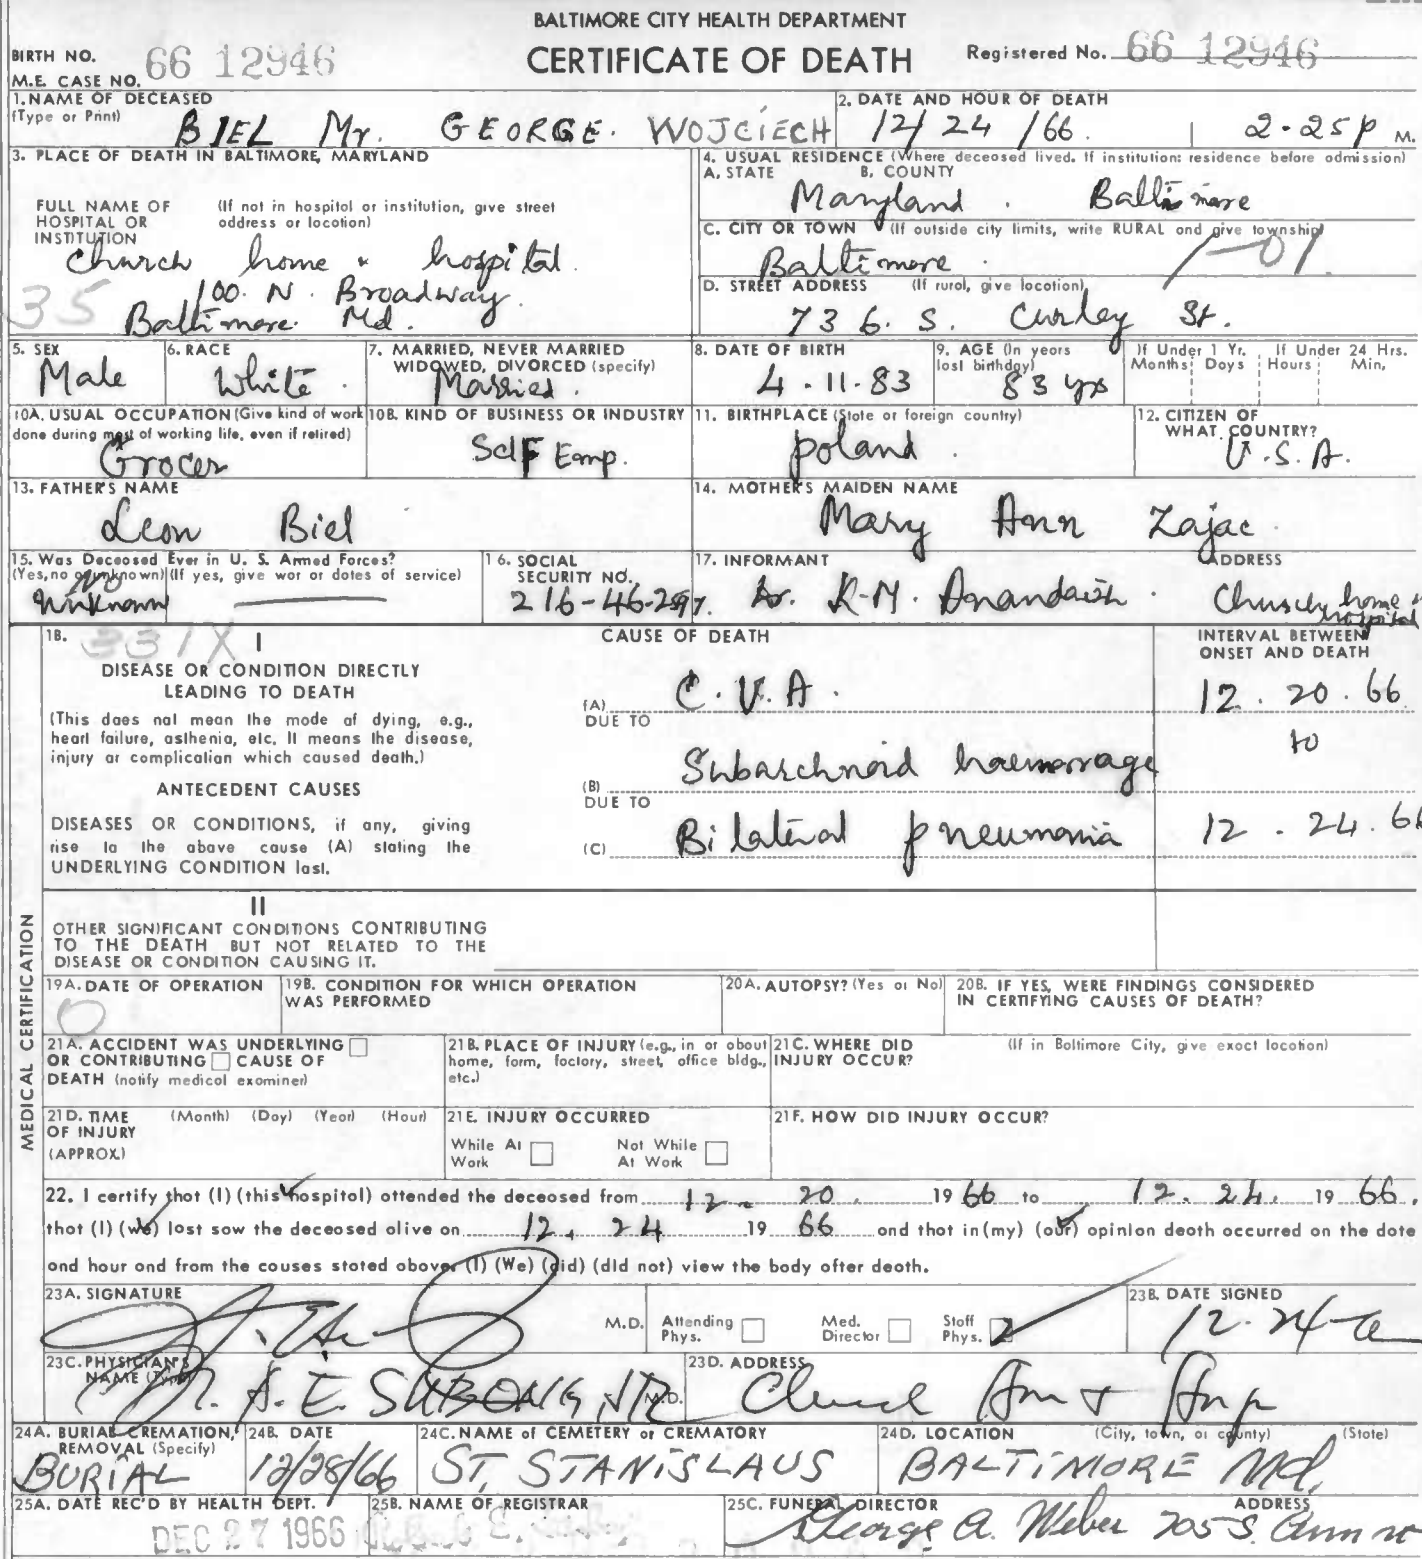 BALTIMORE CITY HEALTH DEPARTMENT
CERTIFICATE OF DEATH
BIRTH NO. 66 12946
M.E. CASE NO.
Registered No. 66 12946
1. NAME OF DECEASED
(Type or Print) BIEL Mr. GEORGE. WOJCIECH
2. DATE AND HOUR OF DEATH
12/24/66. 2.25P M.
3. PLACE OF DEATH IN BALTIMORE, MARYLAND
FULL NAME OF HOSPITAL OR INSTITUTION
(If not in hospital or institution, give street address or location)
Church home & hospital.
100. N. Broadway.
Baltimore. Md.
35
4. USUAL RESIDENCE (Where deceased lived. If institution: residence before admission)
A. STATE B. COUNTY
Maryland. Baltimore
C. CITY OR TOWN (If outside city limits, write RURAL and give township)
Baltimore. 1-01
D. STREET ADDRESS (If rural, give location)
736. S. Curley St.
5. SEX
Male
6. RACE
White.
7. MARRIED, NEVER MARRIED
WIDOWED, DIVORCED (specify)
Married.
8. DATE OF BIRTH
4.11.83
9. AGE (In years
last birthday)
83 yrs
If Under 1 Yr. If Under 24 Hrs.
Months Days Hours Min.
10A. USUAL OCCUPATION (Give kind of work
done during most of working life, even if retired)
Grocer
10B. KIND OF BUSINESS OR INDUSTRY
Self Emp.
11. BIRTHPLACE (State or foreign country)
poland.
12. CITIZEN OF
WHAT COUNTRY?
U.S.A.
13. FATHER'S NAME
Leon Biel
14. MOTHER'S MAIDEN NAME
Mary Ann Zajac.
15. Was Deceased Ever in U. S. Armed Forces?
(Yes, no or unknown) (If yes, give war or dates of service)
No
unknown
16. SOCIAL
SECURITY NO.
216-46-2597.
17. INFORMANT ADDRESS
Dr. K.M. Church home & hospital
18. 331X
I
DISEASE OR CONDITION DIRECTLY
LEADING TO DEATH
(This does not mean the mode of dying, e.g.,
heart failure, asthenia, etc. It means the disease,
injury or complication which caused death.)
ANTECEDENT CAUSES
DISEASES OR CONDITIONS, if any, giving
rise to the above cause (A) stating the
UNDERLYING CONDITION last.
CAUSE OF DEATH
(A) C.V.A.
DUE TO
(B) Subarchnoid haemorrage
DUE TO
(C) Bilateral pneumonia
INTERVAL BETWEEN
ONSET AND DEATH
12.20.66
to
12.24.66
MEDICAL CERTIFICATION
II
OTHER SIGNIFICANT CONDITIONS CONTRIBUTING
TO THE DEATH BUT NOT RELATED TO THE
DISEASE OR CONDITION CAUSING IT.
19A. DATE OF OPERATION
0
19B. CONDITION FOR WHICH OPERATION
WAS PERFORMED
20A. AUTOPSY? (Yes or No)
20B. IF YES, WERE FINDINGS CONSIDERED
IN CERTIFYING CAUSES OF DEATH?
21A. ACCIDENT WAS UNDERLYING
OR CONTRIBUTING CAUSE OF
DEATH (notify medical examiner)
21B. PLACE OF INJURY (e.g., in or about
home, farm, factory, street, office bldg.,
etc.)
21C. WHERE DID (If in Baltimore City, give exact location)
INJURY OCCUR?
21D. TIME (Month) (Day) (Year) (Hour)
OF INJURY
(APPROX.)
21E. INJURY OCCURRED
While At Work
Not While At Work
21F. HOW DID INJURY OCCUR?
22. I certify that (I) (this hospital) attended the deceased from 12. 20. 19 66 to 12. 24. 19 66.
that (I) (we) last saw the deceased alive on 12. 24 19 66 and that in (my) (our) opinion death occurred on the date
and hour and from the causes stated above. (I) (We) (did) (did not) view the body after death.
23A. SIGNATURE
M.D.
Attending Phys.
Med. Director
Staff Phys.
23B. DATE SIGNED
12-24-66
23C. PHYSICIAN'S
NAME (Type)
A. E. SUBONG JR M.D.
23D. ADDRESS
24A. BURIAL, CREMATION,
REMOVAL (Specify)
BURIAL
24B. DATE
12/28/66
24C. NAME of CEMETERY or CREMATORY
ST. STANISLAUS
24D. LOCATION (City, town, or county) (State)
BALTIMORE Md.
25A. DATE REC'D BY HEALTH DEPT.
DEC 27 1966
25B. NAME OF REGISTRAR
25C. FUNERAL DIRECTOR ADDRESS
George A. Weber 705 S. Ann